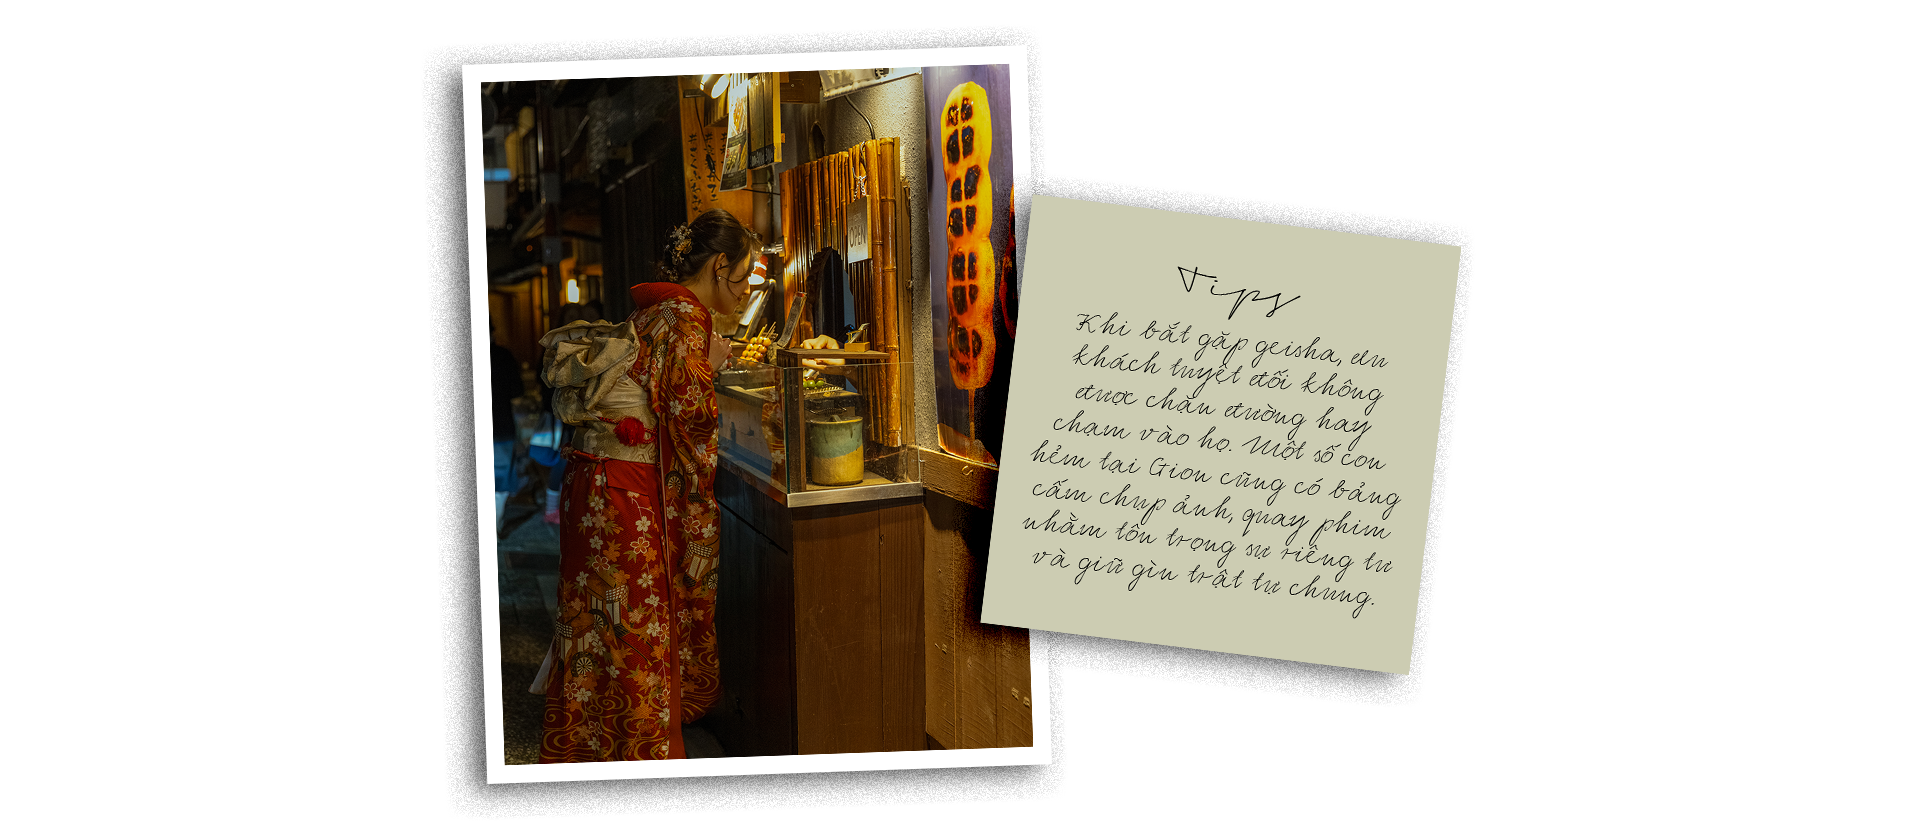 OPEN
Tips
Khi bắt gặp geisha, du
khách tuyệt đối không
được chặn đường hay
chạm vào họ. Một số con
hẻm tại Gion cũng có bảng
cấm chụp ảnh, quay phim
nhằm tôn trọng sự riêng tư
và giữ gìn trật tự chung.